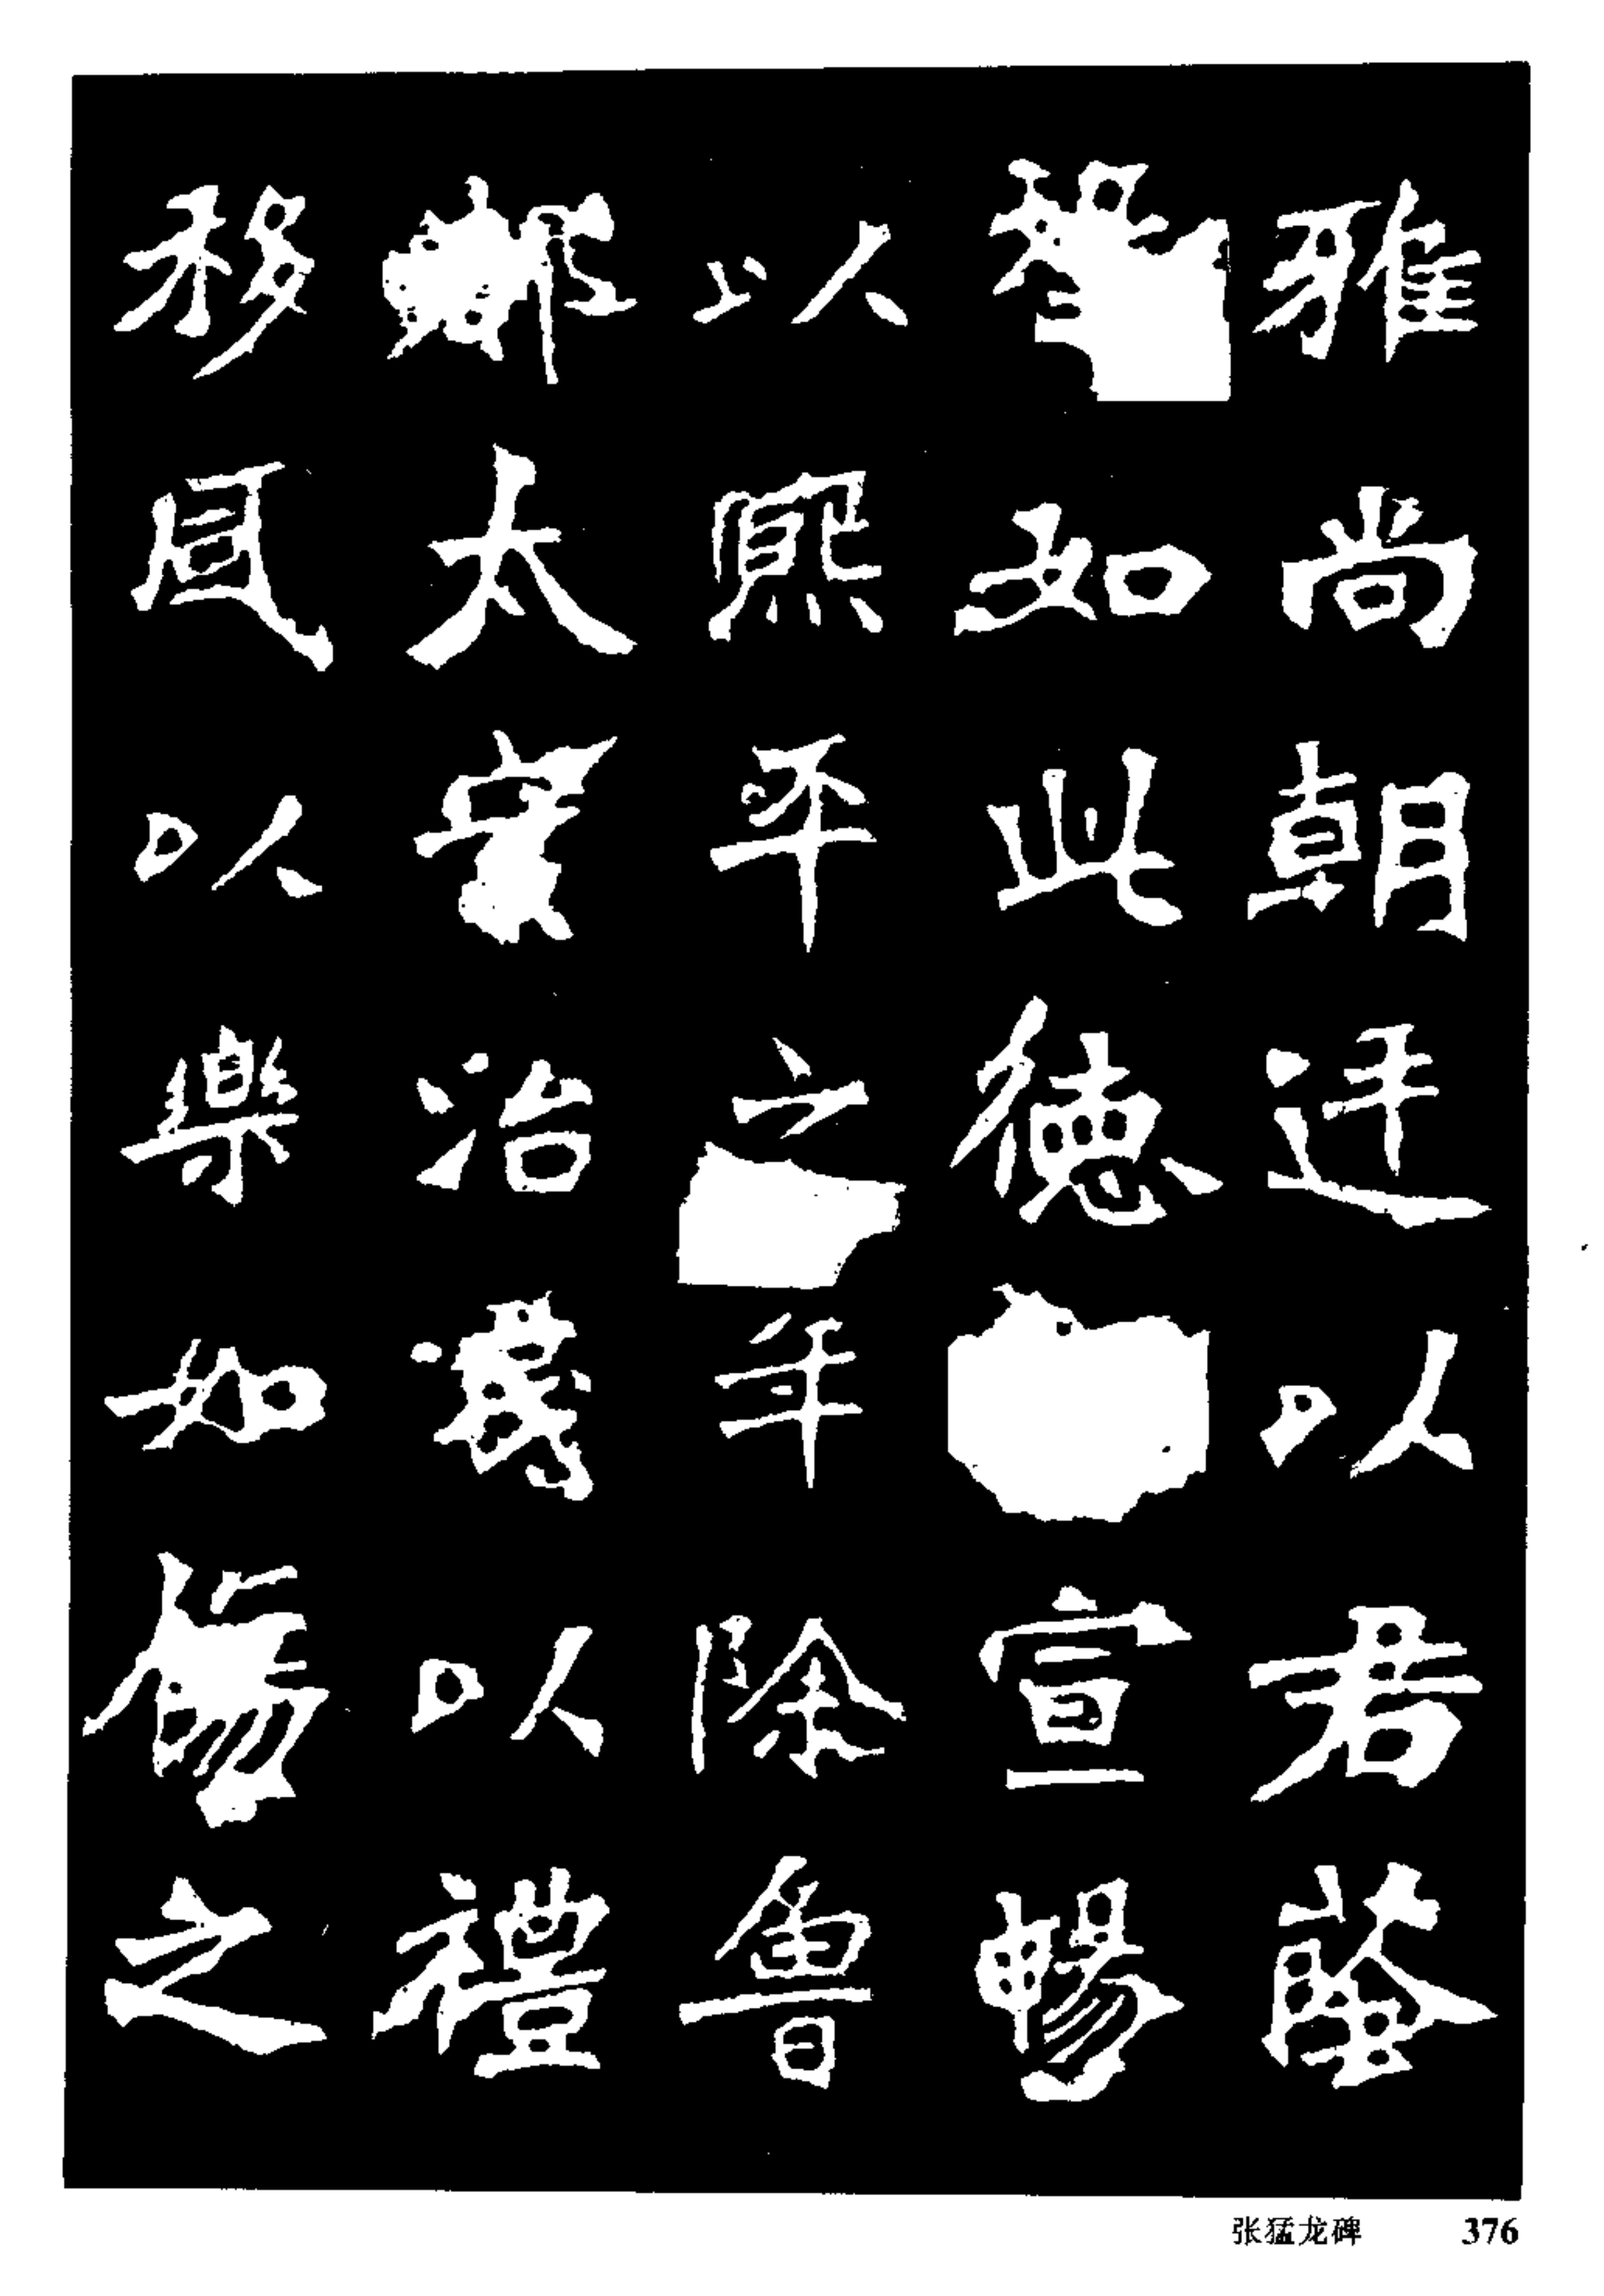 雅尚朝廷以君蔭
望如此德宣暢
以熙平之年除魯
郡太守治以禮
移風以樂如傷之
张猛龙碑 376